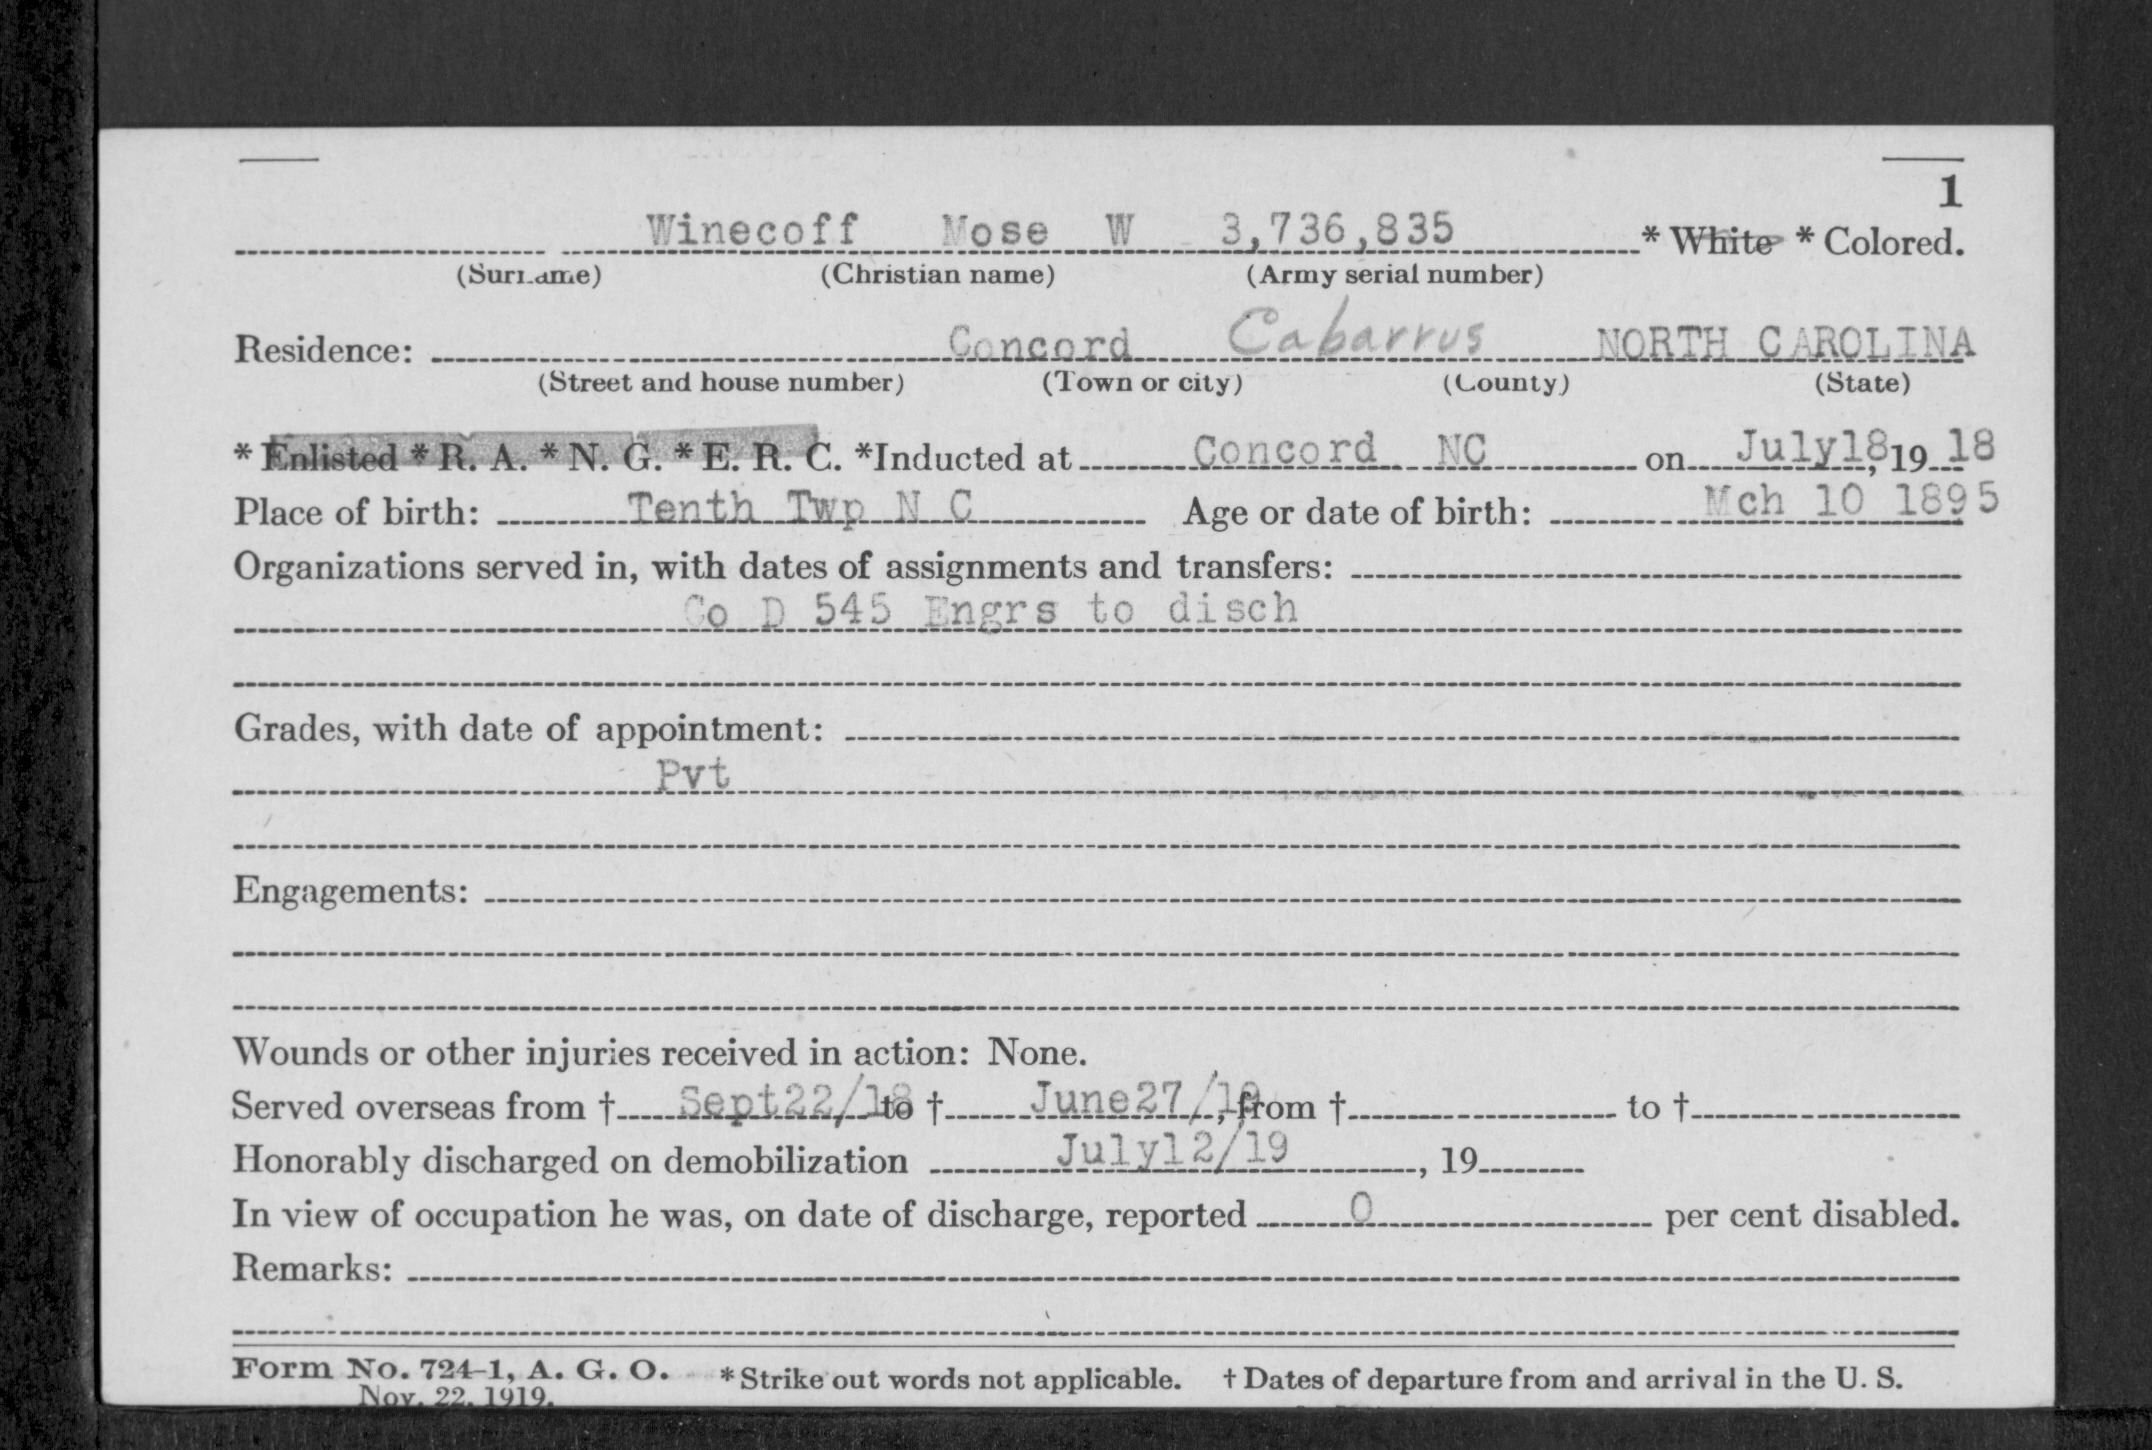 1
Winecoff Mose W 3,736,835 * White * Colored.
(Surname) (Christian name) (Army serial number)
Residence: Concord Cabarrus NORTH CAROLINA
(Street and house number) (Town or city) (County) (State)
* Enlisted * R. A. * N. G. * E. R. C. *Inducted at Concord NC on July18, 19 18
Place of birth: Tenth Twp N C Age or date of birth: Mch 10 1895
Organizations served in, with dates of assignments and transfers:
Co D 545 Engrs to disch
Grades, with date of appointment:
Pvt
Engagements:
Wounds or other injuries received in action: None.
Served overseas from † Sept22/18 to † June27/19, from † to †
Honorably discharged on demobilization July12/19, 19
In view of occupation he was, on date of discharge, reported 0 per cent disabled.
Remarks:
Form No. 724-1, A. G. O. * Strike out words not applicable. † Dates of departure from and arrival in the U. S.
Nov. 22, 1919.